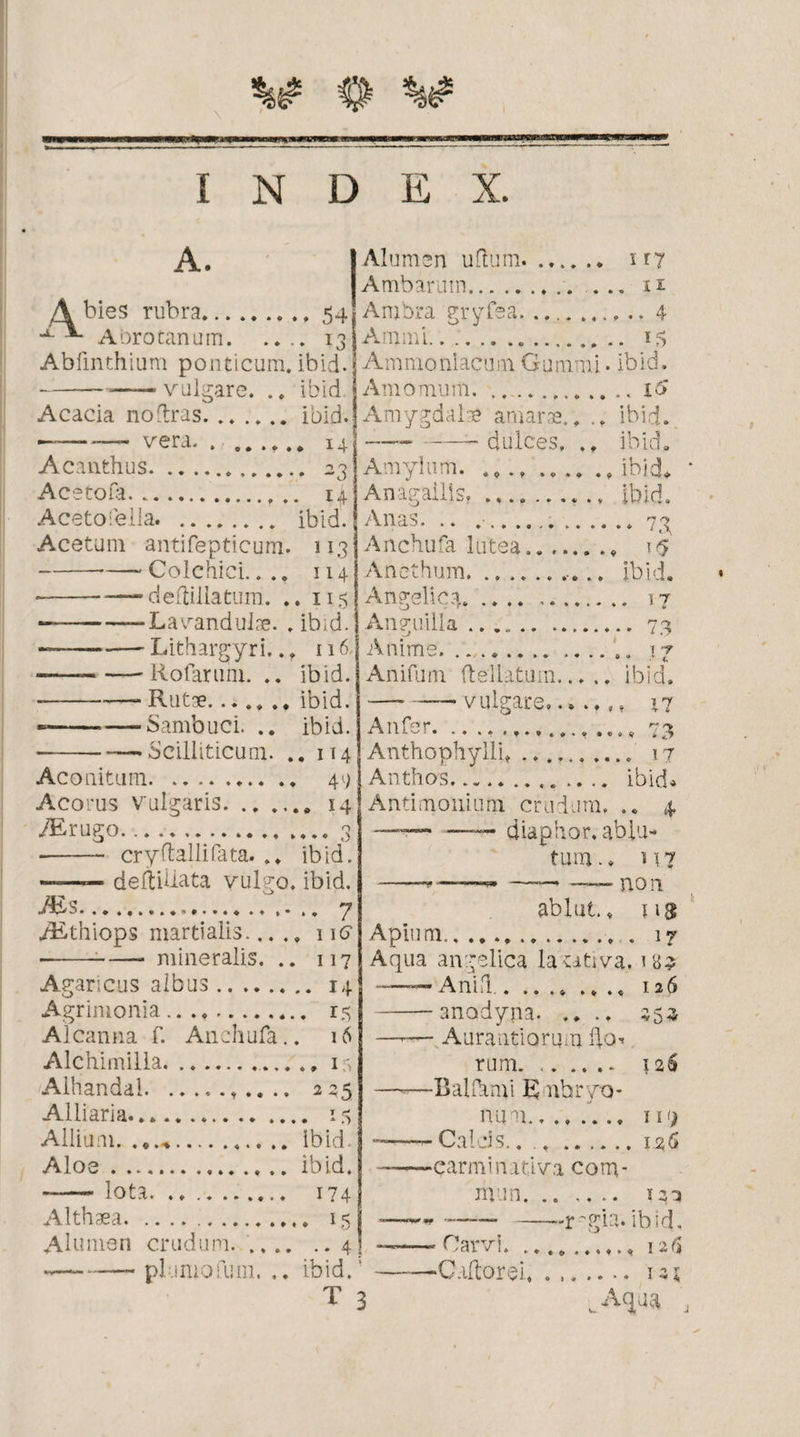 INDEX.
A.
Abies rubra.......... 54
Abrotanum. ..... 13
Abſinthium ponticum. ibid.
——— vulgare. .. ibid.
Acacia noſtras....... ibid.
——— vera. ....... 14
Acanthus. ........... 23
Acetoſa. ............. 14
Acetoſella. ......... ibid.
Acetum antiſepticum. 113
——— Colchici.... 114
——— deſtillatum. .. 115
——— Lavandulæ. . ibid.
——— Lithargyri... 116
——— Roſarum. .. ibid.
——— Rutæ....... ibid.
——— Sambuci. .. ibid.
——— Scilliticum. .. 114
Aconitum. .......... 49
Acorus vulgaris. ...... 14
Ærugo............... 3
——— cryſtalliſata. .. ibid.
——— deſtillata vulgo. ibid.
Æs.................. 7
Æthiops martialis..... 116
——— mineralis. .. 117
Agaricus albus........ 14
Agrimonia............ 15
Alcanna ſ. Anchuſa.. 16
Alchimilla............ 15
Alhandal. .......... 225
Alliaria.............. 15
Allium. ............ ibid.
Aloe .............. ibid.
——— lota. ......... 174
Althæa. ............. 15
Alumen crudum. ...... 4
——— plumoſum. .. ibid.
Alumen uſtum. ...... 117
Ambarum............ 11
Ambra gryſea. ......... 4
Ammi............... 15
Ammoniacum Gummi. ibid.
Amomum. ........... 16
Amygdalæ amaræ.... ibid.
——— ——— dulces. .. ibid.
Amylum. .......... ibid.
Anagallis. ......... ibid.
Anas. .............. 73
Anchuſa lutea........ 16
Anethum. .......... ibid.
Angelica. ............ 17
Anguilla ............ 73
Anime. ............. 17
Aniſum ſtellatum..... ibid.
——— vulgare...... 17
Anſer. ............. 73
Anthophylli. .......... 17
Anthos............. ibid.
Antimonium crudum. .. 4
——— ——— diaphor. ablu-
tum.. 117
——— ——— ——— non
ablut.. 118
Apium.............. 17
Aqua angelica laxativa. 182
——— Aniſi......... 126
——— anodyna. .... 252
——— Aurantiorum flo-
rum. ...... 126
——— Balſami Embryo-
num........ 119
——— Calcis......... 126
——— carminativa com-
mun. ...... 120
——— ——— ——— regia. ibid.
——— Carvi. ......... 126
——— Caſtorei. ....... 121
T 3
Aqua